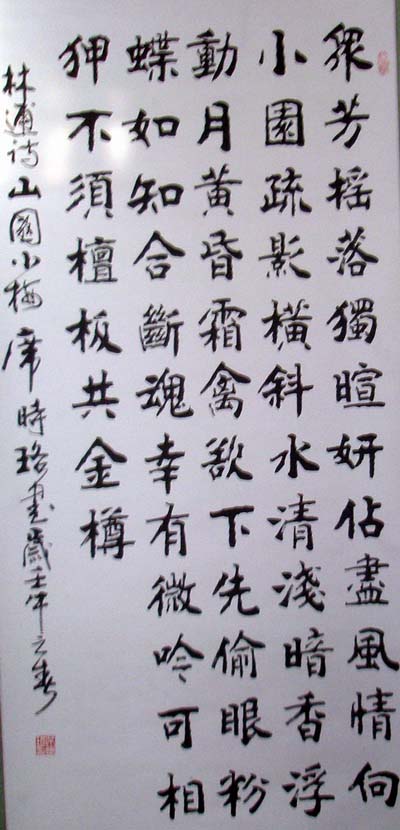 衆芳摇落獨暄妍佔盡風情向
小園疏影橫斜水清淺暗香浮
動月黃昏霜禽欲下先偷眼粉
蝶如知合斷魂幸有微吟可相
狎不須檀板共金樽
林逋诗山園小梅 席時珞書歲壬午之春